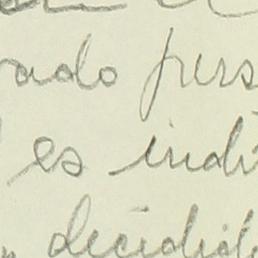 ado pers
es indi
decidid